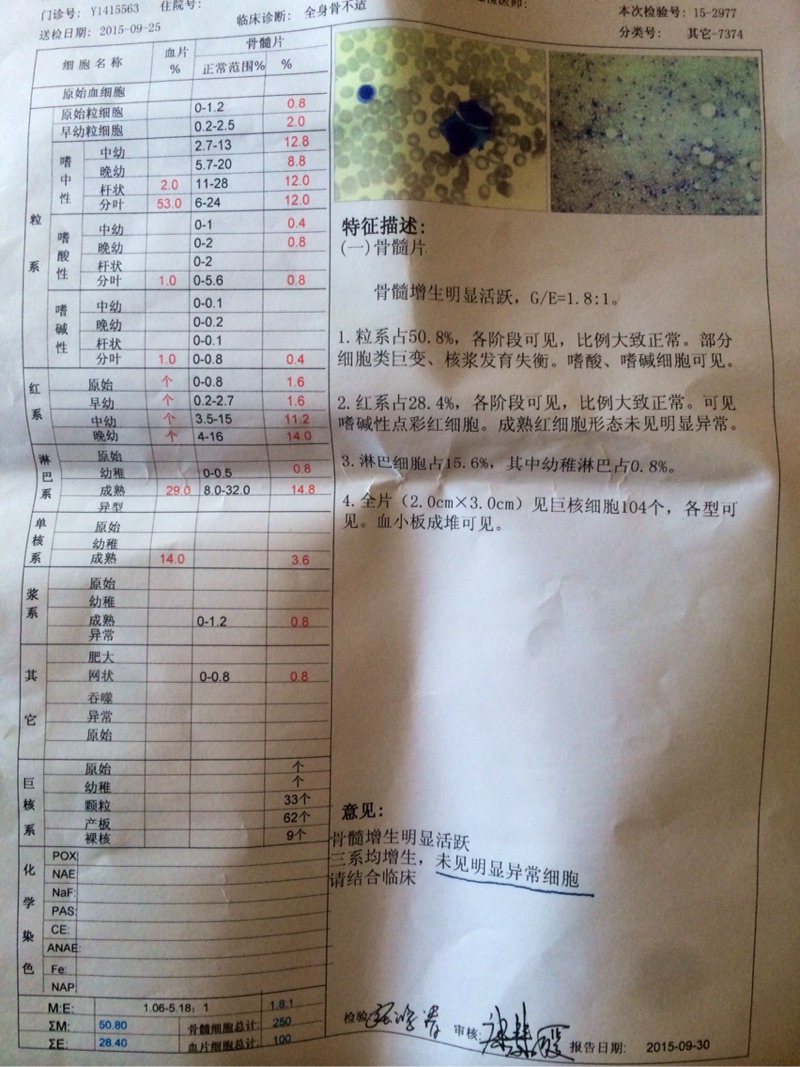 门诊号: Y1415563 住院号:
临床诊断: 全身骨不适
本次检验号: 15-2977
送检日期: 2015-09-25
分类号: 其它-7374
细胞名称 血片 % 骨髓片
正常范围% %
原始血细胞
粒系
原始粒细胞 0-1.2 0.8
早幼粒细胞 0.2-2.5 2.0
嗜中性
中幼 2.7-13 12.8
晚幼 5.7-20 8.8
杆状 2.0 11-28 12.0
分叶 53.0 6-24 12.0
嗜酸性
中幼 0-1 0.4
晚幼 0-2 0.8
杆状 0-2
分叶 1.0 0-5.6 0.8
嗜碱性
中幼 0-0.1
晚幼 0-0.2
杆状 0-0.1
分叶 1.0 0-0.8 0.4
红系
原始 个 0-0.8 1.6
早幼 个 0.2-2.7 1.6
中幼 个 3.5-15 11.2
晚幼 个 4-16 14.0
淋巴系
原始
幼稚 0-0.5 0.8
成熟 29.0 8.0-32.0 14.8
异型
单核系
原始
幼稚
成熟 14.0 3.6
浆系
原始
幼稚
成熟 0-1.2 0.8
异常
其它
肥大
网状 0-0.8 0.8
吞噬
异常
原始
巨核系
原始 个
幼稚 个
颗粒 33个
产板 62个
裸核 9个
化学染色
POX
NAE
NaF:
PAS:
CE:
ANAE:
Fe:
NAP:
M:E: 1.06-5.18: 1 1.8.1
ΣM: 50.80 骨髓细胞总计: 250
ΣE: 28.40 血片细胞总计: 100
特征描述:
(一)骨髓片
骨髓增生明显活跃，G/E=1.8:1。
1.粒系占50.8%，各阶段可见，比例大致正常。部分
细胞类巨变、核浆发育失衡。嗜酸、嗜碱细胞可见。
2.红系占28.4%，各阶段可见，比例大致正常。可见
嗜碱性点彩红细胞。成熟红细胞形态未见明显异常。
3.淋巴细胞占15.6%，其中幼稚淋巴占0.8%。
4.全片（2.0cm×3.0cm）见巨核细胞104个，各型可
见。血小板成堆可见。
意见:
骨髓增生明显活跃
三系均增生，未见明显异常细胞
请结合临床
检验
审核:
报告日期: 2015-09-30